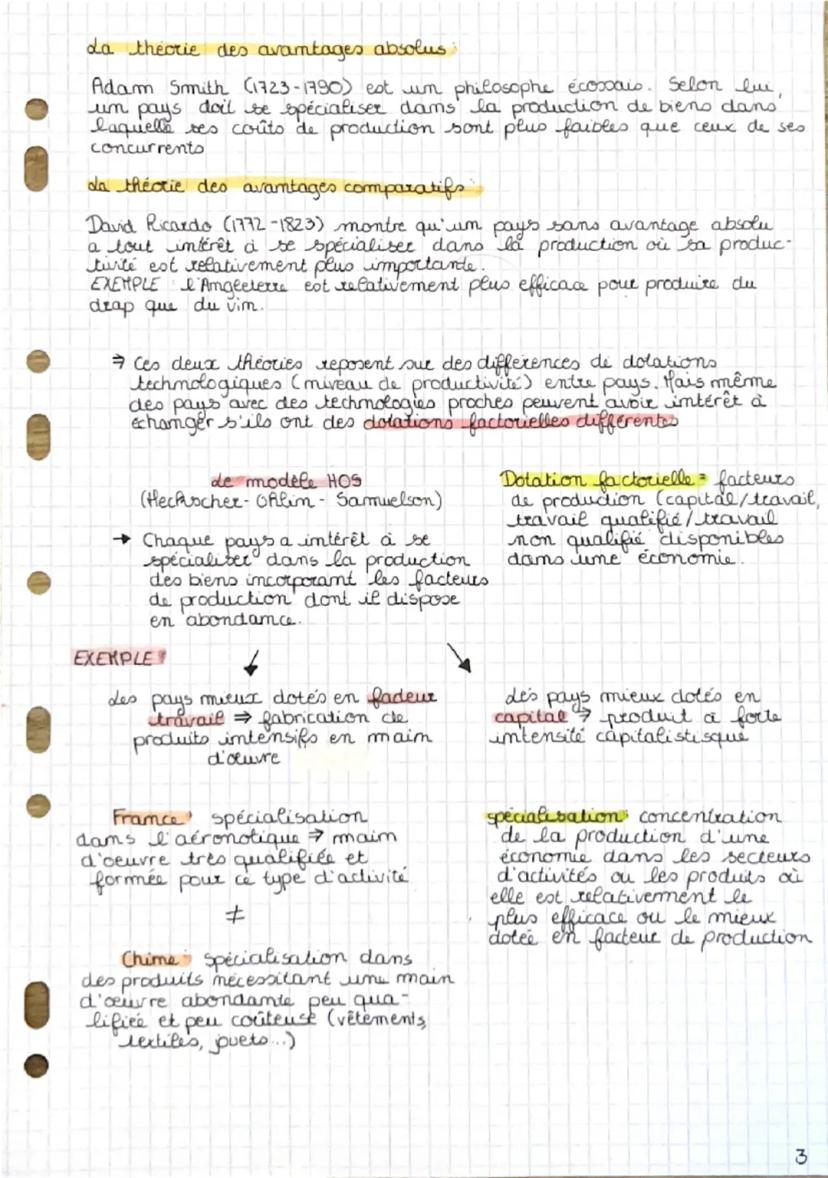 La théorie des avantages absolus :
Adam Smith (1723-1790) est un philosophe écossais. Selon lui,
un pays doit se spécialiser dans la production de biens dans
laquelle ses coûts de production sont plus faibles que ceux de ses
concurrents
La théorie des avantages comparatifs :
David Ricardo (1772-1823) montre qu'un pays sans avantage absolu
a tout intérêt à se spécialiser dans la production où sa produc-
tivité est relativement plus importante.
EXEMPLE : l'Angleterre est relativement plus efficace pour produire du
drap que du vin.
⇒ Ces deux théories reposent sur des différences de dotations
technologiques (niveau de productivité) entre pays. Mais même
des pays avec des technologies proches peuvent avoir intérêt à
échanger s'ils ont des dotations factorielles différentes
Le modèle HOS
(Heckscher - Ohlin - Samuelson)
→ Chaque pays a intérêt à se
spécialiser dans la production
des biens incorporant les facteurs
de production dont il dispose
en abondance.
Dotation factorielle = facteurs
de production (capital/travail,
travail qualifié/travail
non qualifié disponibles
dans une économie.
EXEMPLE :
des pays mieux dotés en facteur
travail ⇒ fabrication de
produits intensifs en main
d'œuvre
des pays mieux dotés en
capital ⇒ produit à forte
intensité capitalistisque
France : spécialisation
dans l'aéronotique ⇒ main
d'oeuvre très qualifiée et
formée pour ce type d'activité
≠
Chine : spécialisation dans
des produits nécessitant une main
d'œuvre abondante peu qua-
lifiée et peu coûteuse (vêtements,
textiles, jouets...)
spécialisation : concentration
de la production d'une
économie dans les secteurs
d'activités ou les produits où
elle est relativement le
plus efficace ou le mieux
dotée en facteur de production
3